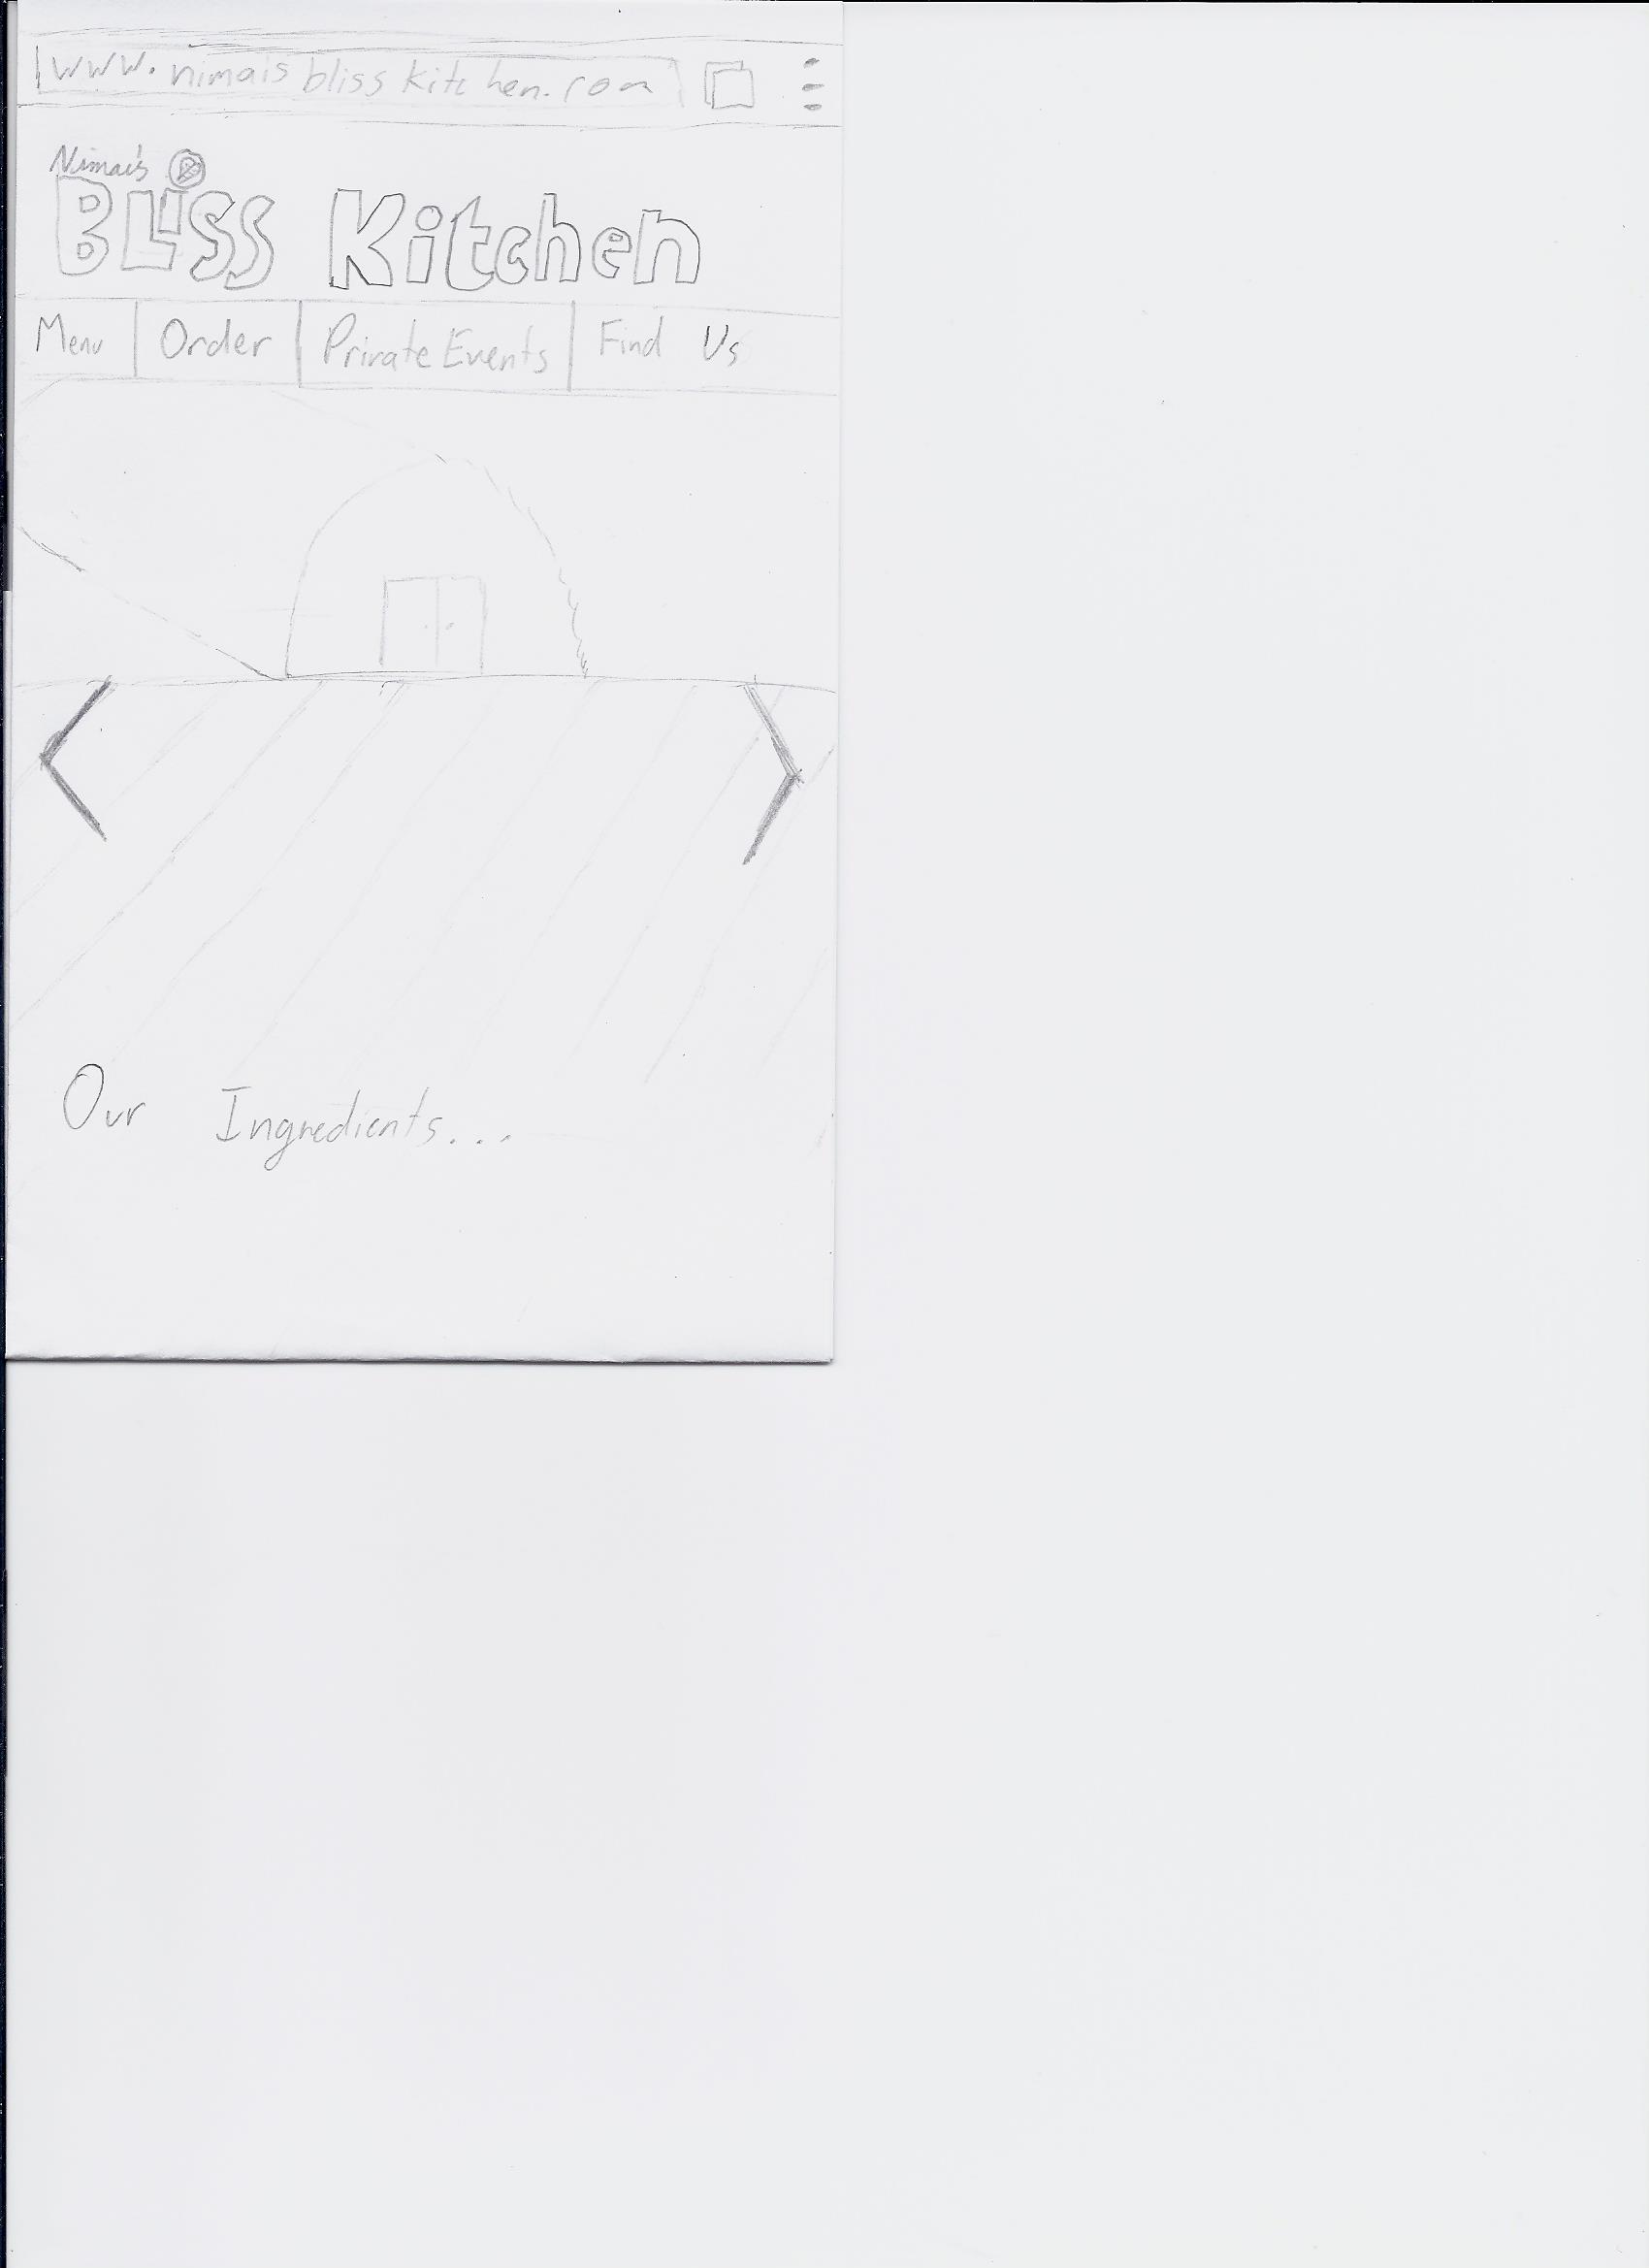 www.nimaisblisskitchen.com
Nimai's
BLiSS Kitchen
Menu Order Private Events Find Us
Our Ingredients...